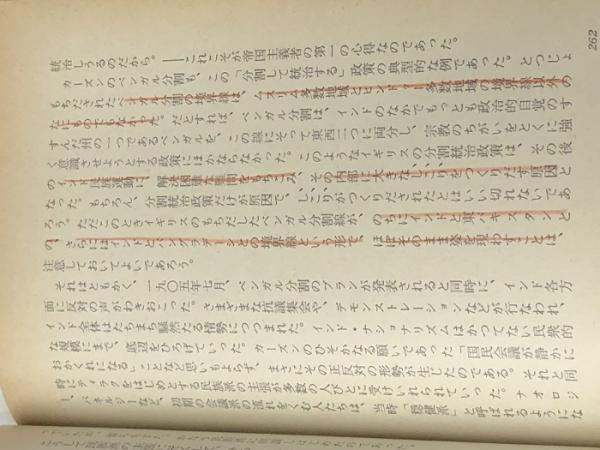 262
統治しうるのだから。――これこそが帝国主義者の第一の心得なのであった。
カーズンのベンガル分割も、この「分割して統治する」政策の典型的な例であった。とつじょ
もちだされたベンガル分割の境界線は、ムスリム多数地域とヒンドゥー多数地域の境界線以外の
なにものでもなかった。だとすれば、ベンガル分割は、インドのなかでもっとも政治的自覚のす
すんだ州の一つであるベンガルを、この線にそって東西二つに両分し、宗教のちがいをとくに強
く意識させようとする政策にほかならなかった。このようなイギリスの分割統治政策は、その後
のインド民族運動に、解決困難な難問をもちこみ、その内部に大きなしこりをつくりだす原因と
なった。もちろん、分割統治政策だけが原因で、しこりがつくりだされたとはいい切れないであ
ろう。ただこのときイギリスのもちだしたベンガル分割線が、のちにインドと東パキスタンと
の、さらにはインドとバングラデーシュとの境界線という形で、ほぼそのまま姿を現わすことは、
注意しておいてよいであろう。
それはともかく、一九〇五年七月、ベンガル分割のプランが発表されると同時に、インド各方
面に反対の声がわきおこった。さまざまな抗議集会や、デモンストレーションなどが行なわれ、
インド全体はたちまち騒然たる情勢につつまれた。インド・ナショナリズムはかつてない民衆的
な規模にまで、底辺をひろげていった。カーズンのひそかなる願いであった「国民会議が静かに
おかくれになる」ことなど思いもよらず、まさにその正反対の形勢が生じたのである。それと同
時にティラクをはじめとする民族派の主張が多数の人びとに受けいれられていった。ナオロジ
ー、バネルジーなど、初期の会議派の流れをくむ人たちは、当時「穏健派」と呼ばれるようにな